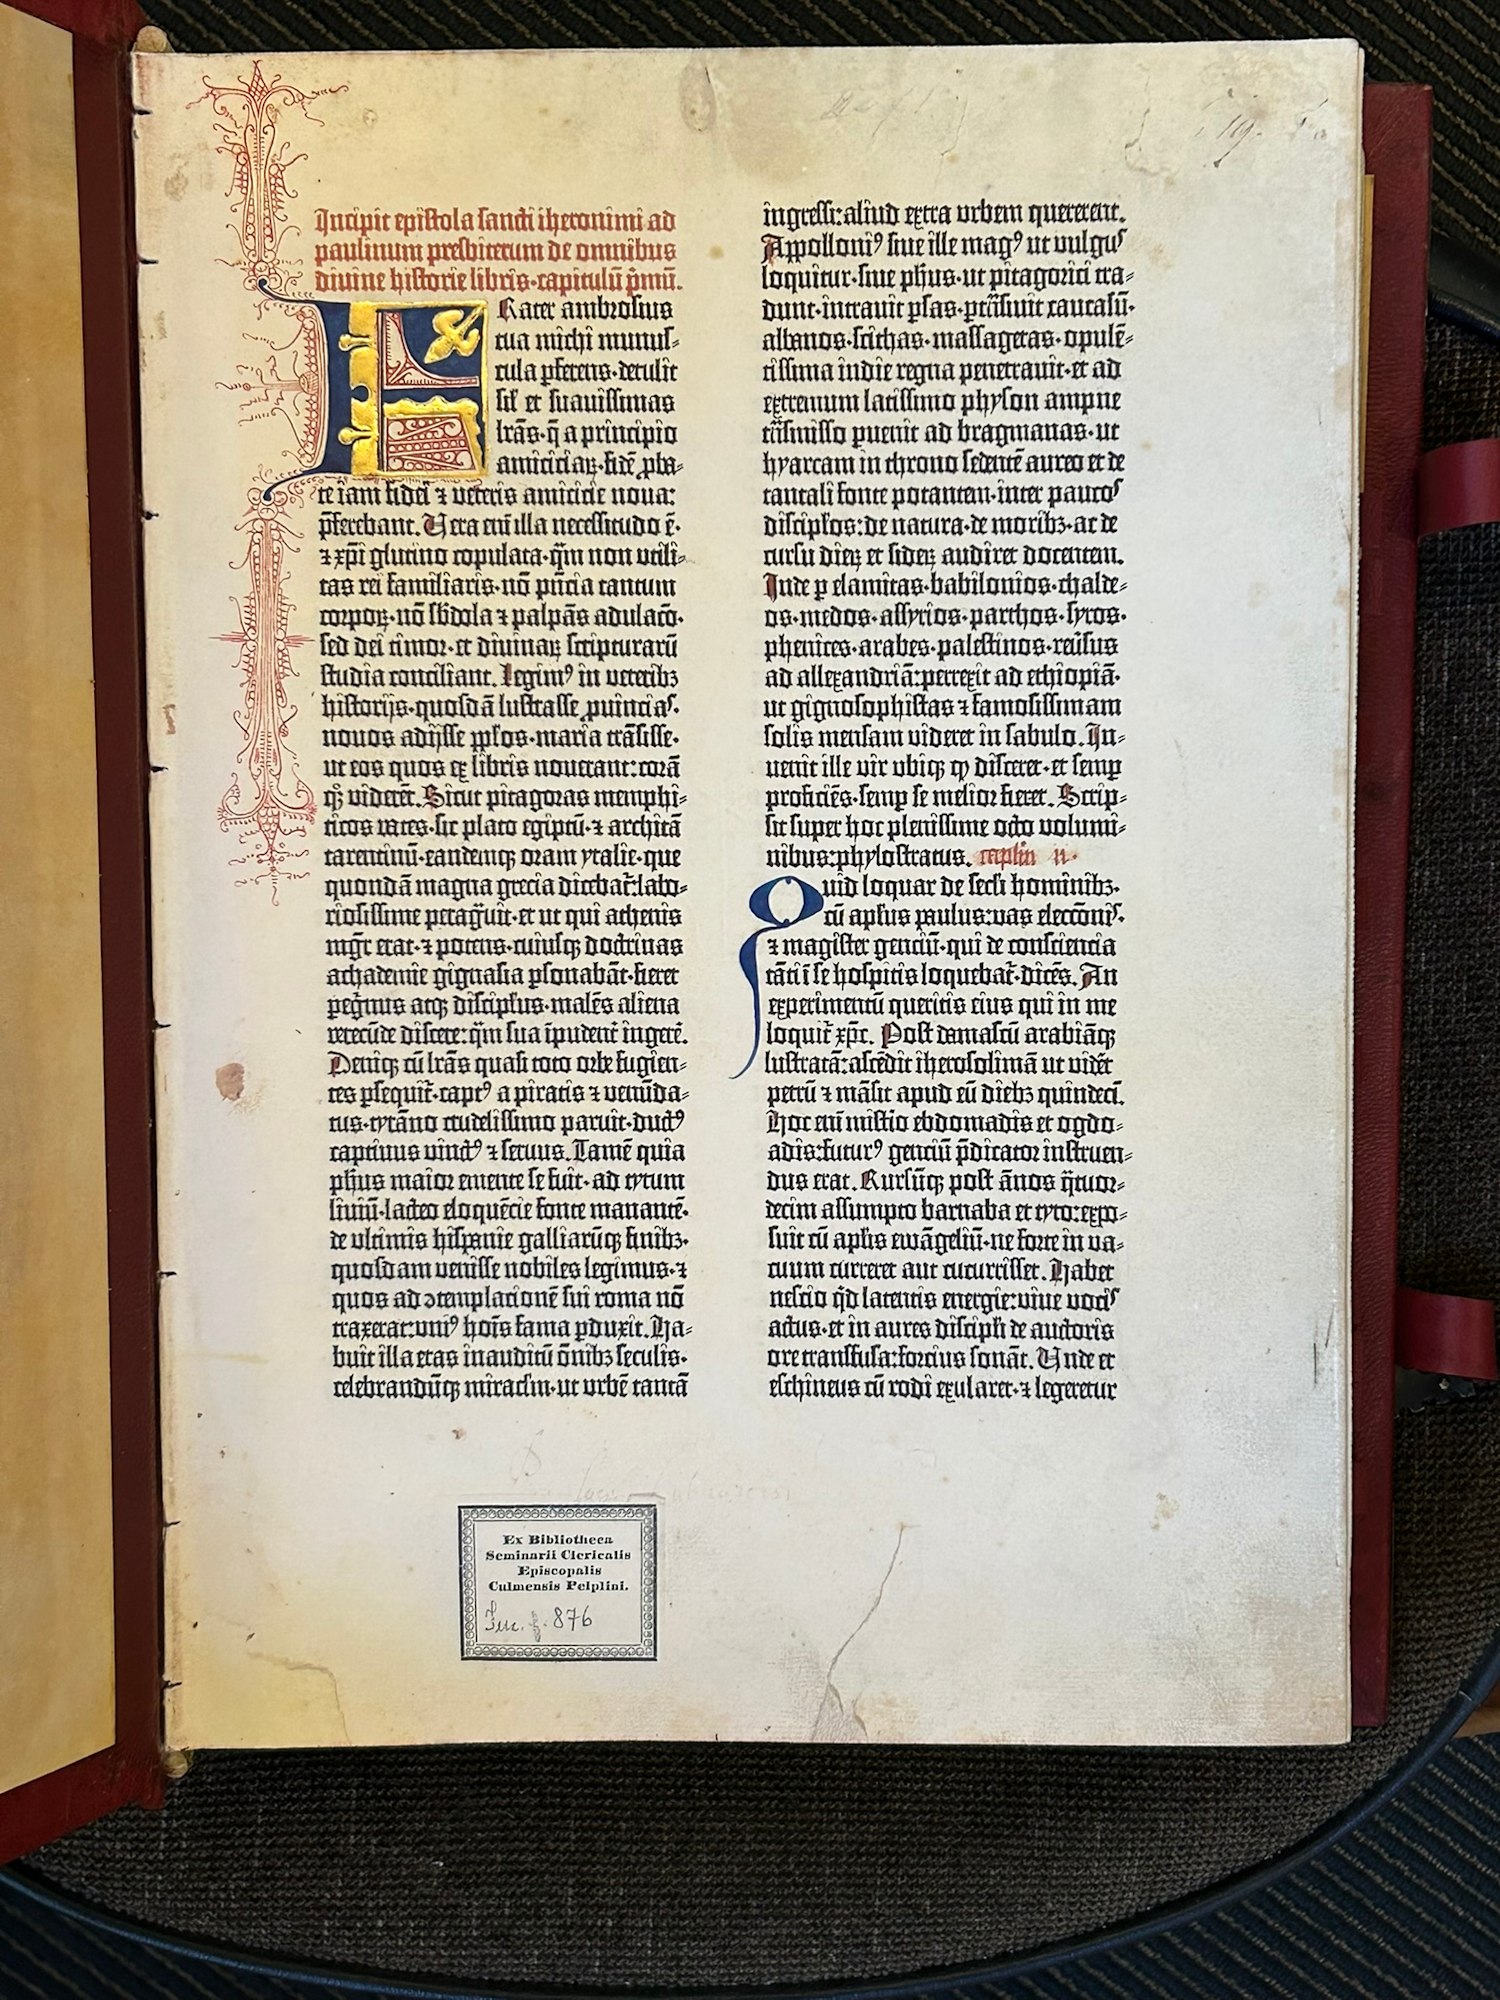 Incipit epistola sancti iheronimi ad
paulinum presbiterum de omnibus
divine historie libris·capitulū p̄mū.
Frater ambrosius
tua michi munus-
cula p̲ferens·detulit
sil̄ et suavissimas
lr̄as·q̄ a principio
amiciciaꝝ·fidē ꝓba-
te iam fidei ⁊ veteris amicicie nova:
p̄ferebant. Vera eni̅ illa necessitudo ē·
⁊ xp̄i glutino copulata·q̄m non utili-
tas rei familiaris·nō pn̄cia tantum
corpoꝝ·nō sb̄dola ⁊ palpās adulacō·
sed dei timor·et divinaꝝ scripturarū
studia conciliant. Legimꝰ in veteribꝫ
historijs·quosdā lustrasse ꝓuinciaˢ·
novos adijsse pp̄los·maria trāsisse·
ut eos quos ex libris noverant:corā
qꝫ viderēt. Sicut pitagoras memphi-
ticos vates·sic plato egiptū·⁊ architā
tarentinū·eandemqꝫ oram ytalie·que
quondā magna grecia dicebat̄:labo-
riosissime peragᷓvit·et ut qui athenis
mgr̄ erat·⁊ potens·cuiusqꝫ doctrinas
achademie gignasia ꝑsonabāt·fieret
peḡ̲rinus atqꝫ discipl̄us·malēs aliena
verecūde discere:q̄m sua īpudent̄ ingerē̄.
Deniqꝫ cū lr̄as quasi toto orbe fugien-
tes ꝑsequit̄·captꝰ a piratis ⁊ venūda-
tus·tyrāno crudelissimo paruit·ductꝰ
captivus vinctꝰ ⁊ servus. Tamē quia
ph̄us maior emente se fuit·ad tytum
liviū·lacteo eloquēcie fonte manantē·
de ultimis hispanie galliarūqꝫ finibꝫ·
quosdam venisse nobiles legimus·⁊
quos ad ↄtemplacionē sui roma nō
traxerat:uniꝰ hoīs fama ꝑduxit. Ha-
buit illa etas inauditū ōnibꝫ seculis·
celebrandūqꝫ miraclm̄·ut urbē tantā
ingressi:aliud extra urbem quererent.
Appolloniꝰ sive ille magꝰ ut vulgus
loquitur·sive ph̄us·ut pitagorici tra-
dunt·intravit ꝑsas·ꝑtrāsivit caucasū·
albanos·scithas·massagetas·opulē-
tissima indie regna penetravit·et ad
extremum latissimo physon ampne
trāsmisso ꝑvenit ad bragmanas·ut
hyarcam in throno sedentē aureo et de
tantali fonte potantem·inter paucos
discipl̄os:de natura·de moribꝫ·ac de
cursu dieꝝ et sideꝝ audiret docentem.
Inde ꝑ elamitas·babilonios·chalde-
os·medos·assyrios·parthos·syros·
phenices·arabes·palestinos·reūsus
ad allexandriā:perrexit ad ethiopiā·
ut gignosophistas ⁊ famosissimam
solis mensam videret in sabulo. In-
venit ille vir ubiqꝫ qꝫ disceret·et semꝑ
proficiēs·semꝑ se melior fieret. Scrip-
sit super hoc plenissime octo volumi-
nibus:phylostratus. caplm̄ ii·
Quid loquar de secli hominibꝫ·
cū apl̄us paulus:vas eleccōnis·
⁊ magister genciū·qui de consciencia
tāti ī se hospitis loquebat̄·dicēs. An
experimentū queritis eius qui in me
loquit̄ xp̄c. Post damascū arabiāqꝫ
lustratā:ascēdit iherosolimā ut vidēt
petrū ⁊ māsit apud eū diebꝫ quindecī.
Hoc eni̅ mistio ebdomadis et ogdo-
adis:futurꝰ genciū p̄dicator instruen-
dus erat. Rursūqꝫ post ānos q̄tuor-
decim assumpto barnaba et tyto:expo-
suit cū apl̄is ewāgeliū·ne forte in va-
cuum curreret aut cucurrisset. Habet
nescio q̄d latentis energie:vive vocis
actus·et in aures discipl̄i de auctoris
ore transfusa:forcius sonāt. Unde et
eschineus cū rodi exularet·⁊ legeretur
Ex Bibliotheca
Seminarii Clericalis
Episcopalis
Culmensis Pelplini.
876